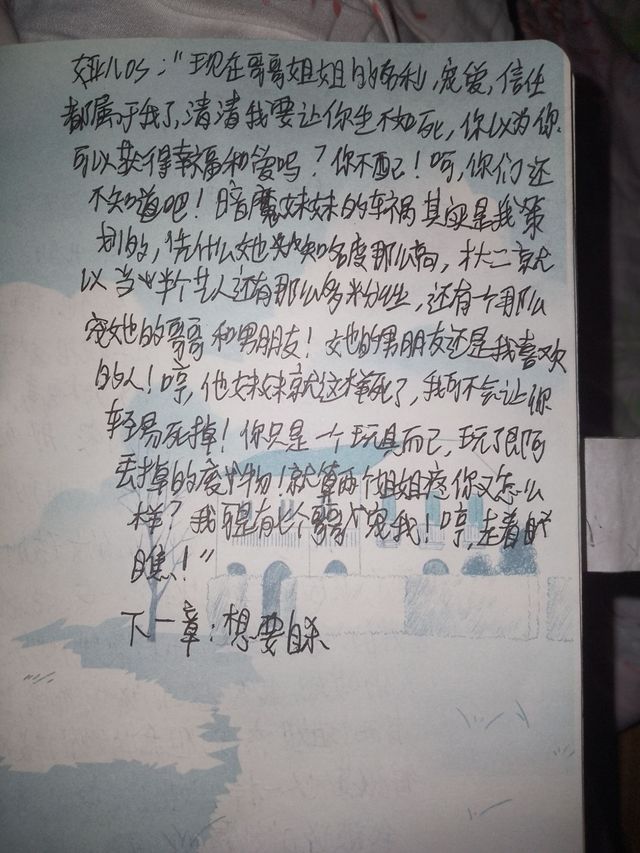 娅儿OS：“现在哥哥姐姐的有利，宠爱，信任
都属于我了，清清我要让你生不如死，你以为你
可以获得幸福和爱吗？你不配！呵，你们还
不知道吧！暗魔妹妹的车祸其实是我策
划的，凭什么她知名度那么高，才大二就
以当半个艺人还有那么多粉丝，还有一个那么
宠她的哥哥和男朋友！她的男朋友还是我喜欢
的人！哼，他妹妹就这样死了，我可不会让你
轻易死掉！你只是一个玩具而己，玩了即可
丢掉的废物！就算两个姐姐疼你又怎么
样？我可是有七个哥宠我！哼，走着
瞧！”
下一章：想要自杀